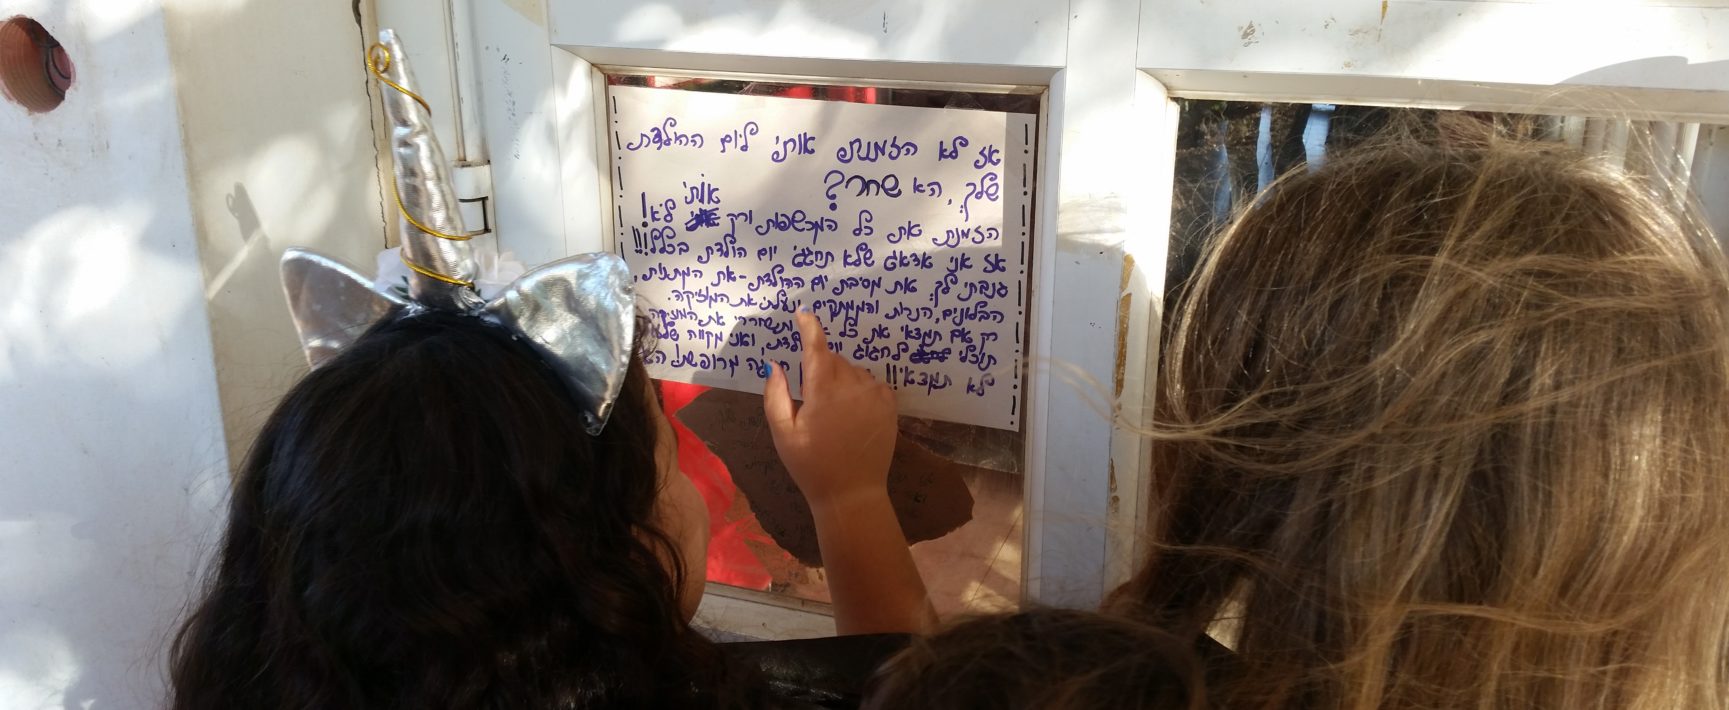 אז לא הזמנת אותי ליום ההולדת
שלך, הא שחר?
הזמנת את כל המכשפות ורק אותי לא!
אז אני אדאג שלא תחגגי יום הולדת בכלל!!!
גנבתי לך את מסיבת יום ההולדת - את המתנות,
הבלונים, הנרות והממתקים ונעלתי את המוזיקה.
רק אם תמצאי את כל ותשחררי את המוזיקה
תוכלי לחגוג יום הולדת, ואני מקווה שלא
לא תמצאי!!